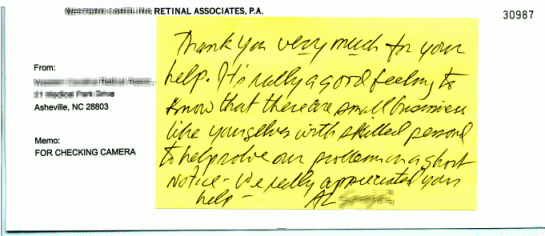 RETINAL ASSOCIATES, P.A.
30987
From:
Asheville, NC 28803
Memo:
FOR CHECKING CAMERA
Thank you very much for your
help. It's really a good feeling to
know that there are small business
like yourselves with skilled personel
to help solve our problem in a short
notice - We really appreciated your
help -
AL